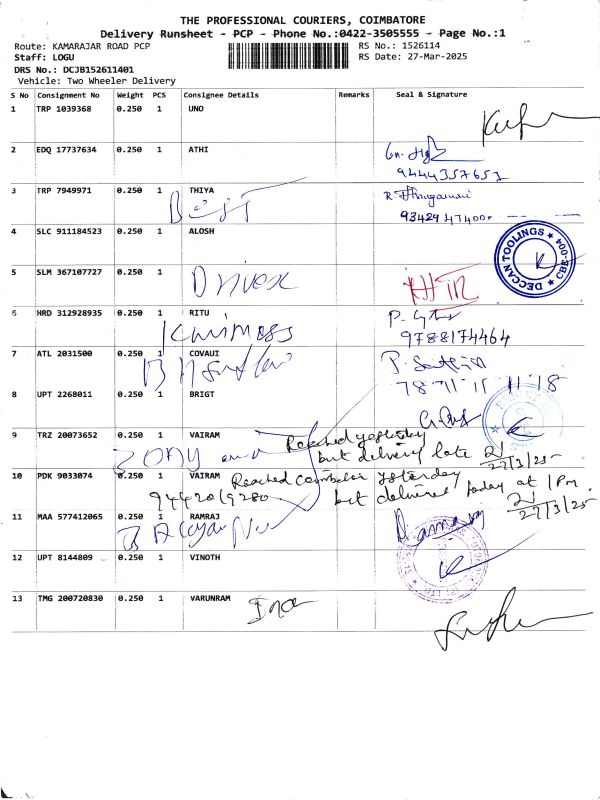 THE PROFESSIONAL COURIERS, COIMBATORE
Delivery Runsheet - PCP - Phone No.:0422-3505555 - Page No.:1
Route: KAMARAJAR ROAD PCP
RS No.: 1526114
Staff: LOGU
RS Date: 27-Mar-2025
DRS No.: DCJB152611401
Vehicle: Two Wheeler Delivery
S No Consignment No Weight PCS Consignee Details Remarks Seal & Signature
1 TRP 1039368 0.250 1 UNO
2 EDQ 17737634 0.250 1 ATHI
9444357657
3 TRP 7949971 0.250 1 THIYA
R. Thangamani
9342947400
4 SLC 911184523 0.250 1 ALOSH
DECCAN TOOLINGS ★ CBE-004 ★
5 SLM 367107727 0.250 1
Drivex
6 HRD 312928935 0.250 1 RITU
9788174464
7 ATL 2031500 0.250 1 COVAUI
8 UPT 2268011 0.250 1 BRIGT
9 TRZ 20073652 0.250 1 VAIRAM
Reached yesterday
but delivery late
27/3/25
10 PDK 9033074 0.250 1 VAIRAM
Reached coimbatore yesterday
but delivered today at 1 PM.
27/3/25
9442019280
11 MAA 577412065 0.250 1 RAMRAJ
12 UPT 8144809 0.250 1 VINOTH
13 TMG 200720830 0.250 1 VARUNRAM